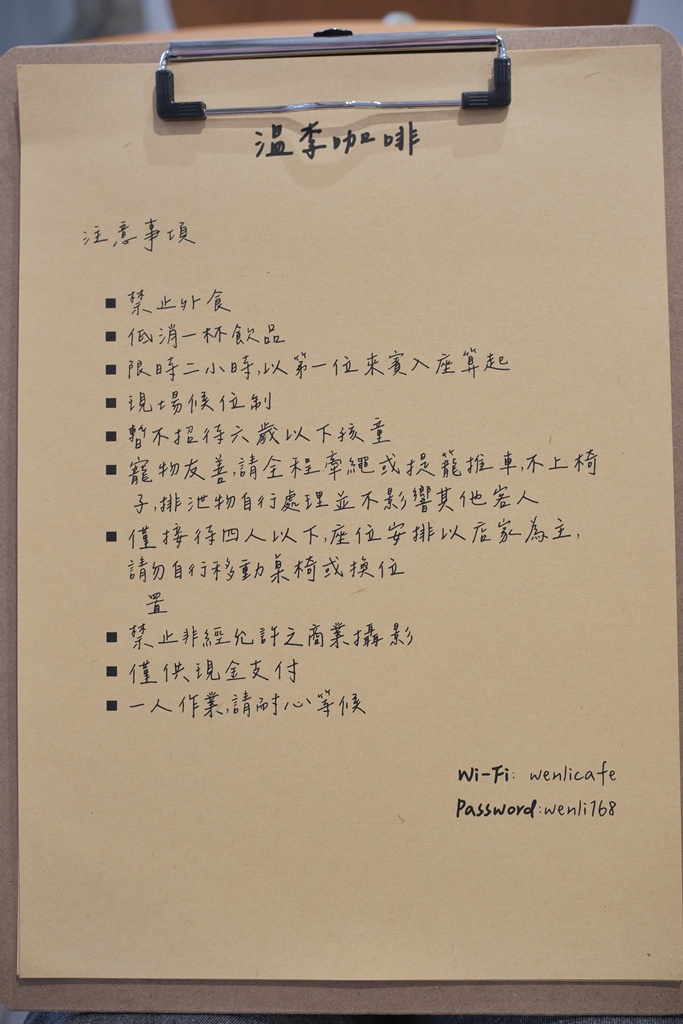 溫李咖啡
注意事項
■ 禁止外食
■ 低消一杯飲品
■ 限時二小時,以第一位來賓入座算起
■ 現場候位制
■ 暫不招待六歲以下孩童
■ 寵物友善,請全程牽繩或提籠推車,不上椅
子,排泄物自行處理並不影響其他客人
■ 僅接待四人以下,座位安排以店家為主,
請勿自行移動桌椅或換位
置
■ 禁止非經允許之商業攝影
■ 僅供現金支付
■ 一人作業,請耐心等候
Wi-Fi: wenlicafe
Password:wenli168